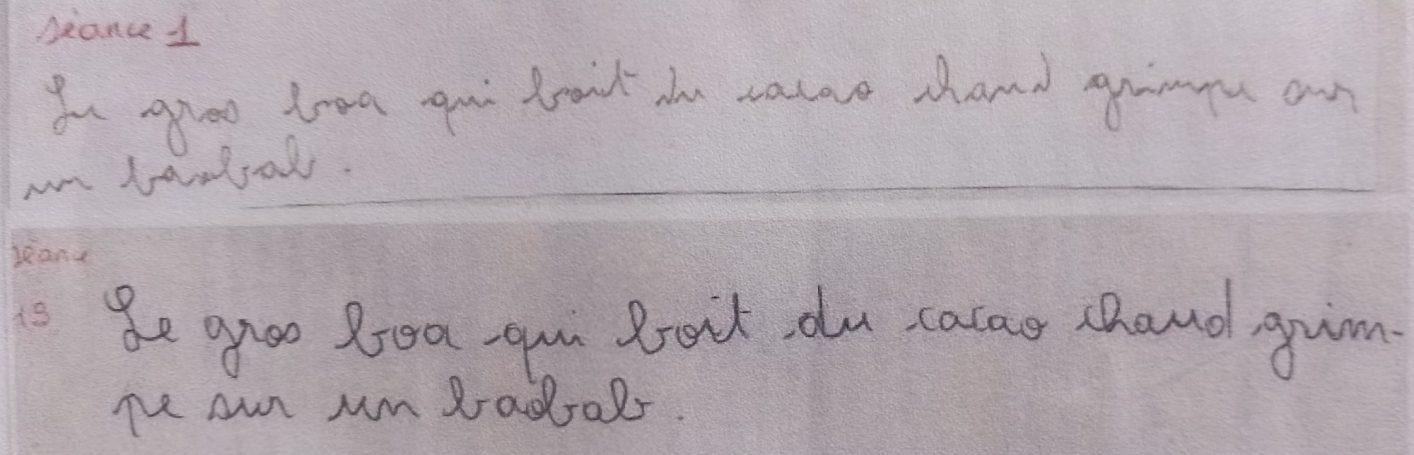 séance 1
Le gros boa qui boit du cacao chaud grimpe sur
un baobab.
séance
19 Le gros boa qui boit du cacao chaud grim-
pe sur un baobab.